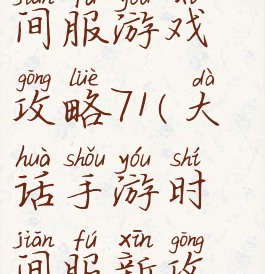 jiān fú yóu xì
间服游戏
gōng lüè dà
攻略71(大
huà shǒu yóu shí
话手游时
jiān fú xīn gōng
间服新攻